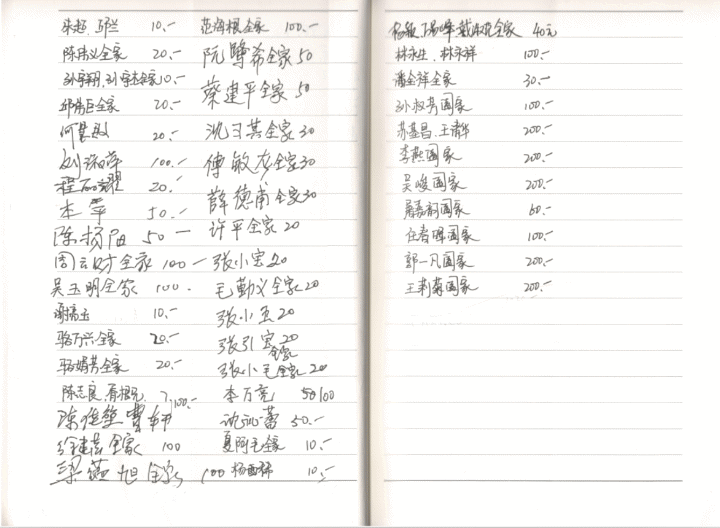 朱超、邱兰 10.-
陈伟义全家 20.-
孙宇翔、刘宇杰全家 10.-
邱伟臣全家 20.-
何慧国 20.-
刘淑萍 100.-
程丽耀 20.-
本草 50.-
陈扬阳 50-
周云财全家 100-
吴玉明全家 100.
10.-
骆万兴全家 20.-
骆娟芳全家 20.-
陈志良、
100.-
陈维莹 曹轩
徐建英全家 100
梁蕴旭全家 100
范海根全家 100.-
阮鹭希全家 50
蔡建平全家 50
沈习英全家 30
傅敏彦全家 30
薛德甫全家 30
许平全家 20
张小宝 20
毛勤义全家 20
张小五 20
张引宝全家 20
张小毛全家 20
李万亮 100
沈沁蕾 50.-
夏阿毛全家 10.-
杨丽稀 10.-
杨敏、戴淑花全家 40元
林永生、林永祥 100.-
潘全祥全家 30.-
孙叔芳阖家 100.-
苏益昌、王清华 200.-
李燕阖家 200.-
吴峻阖家 200.-
屠嘉韵阖家 60.-
任春晖阖家 100.-
郭一凡阖家 200.-
王莉菊阖家 200.-